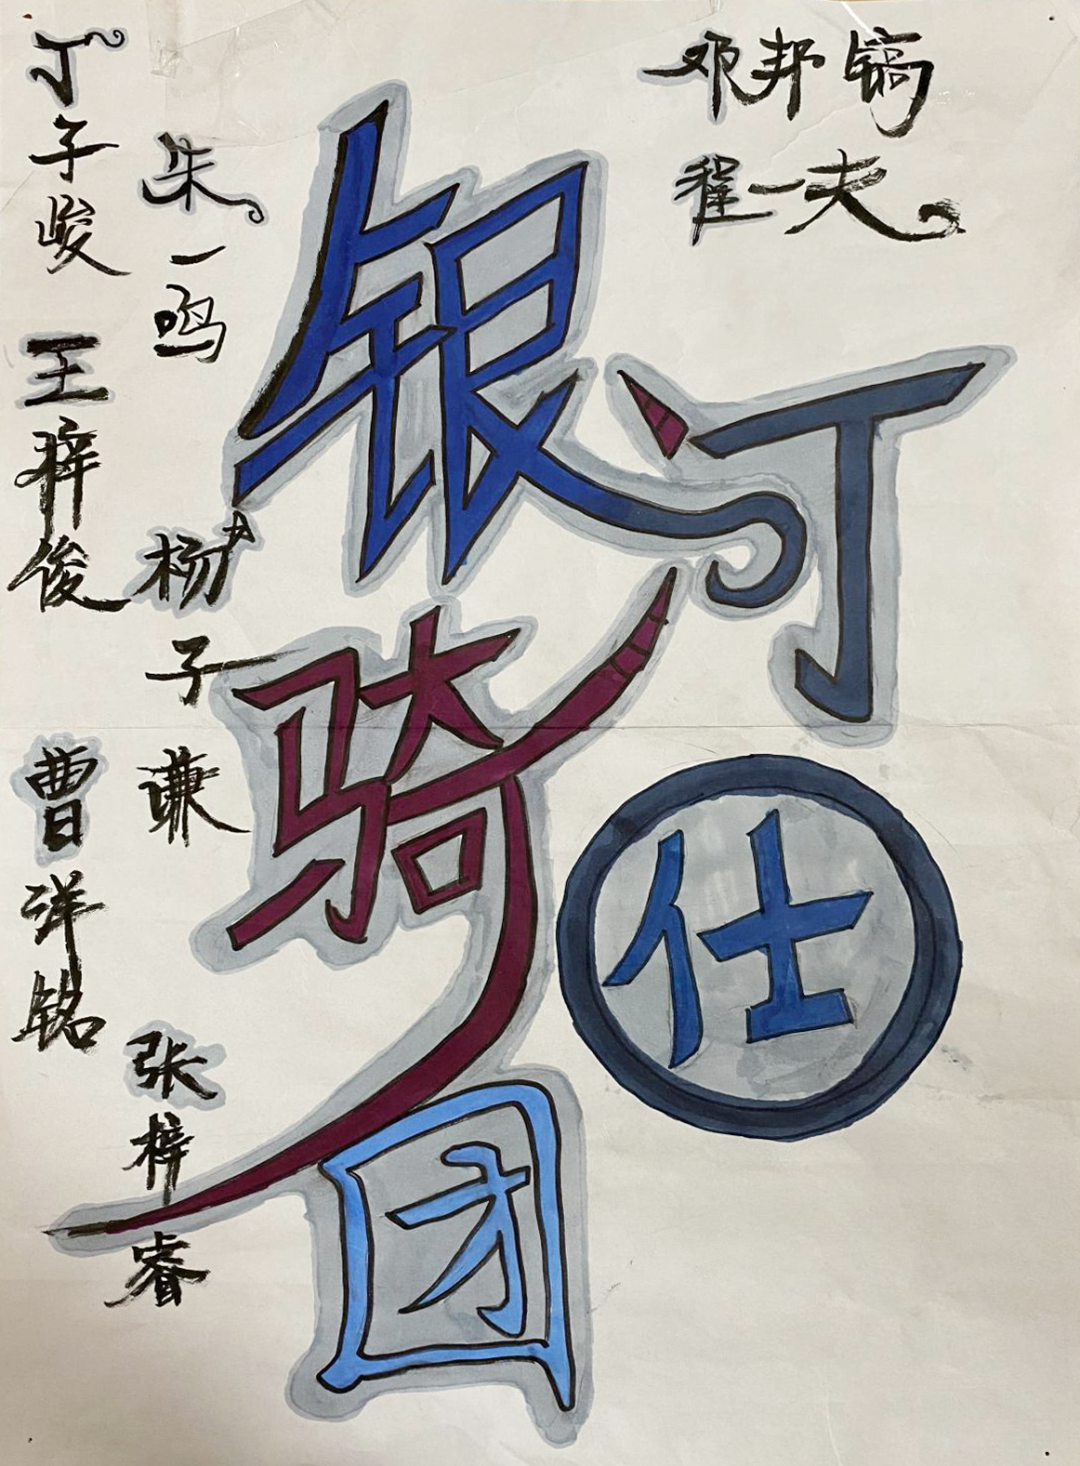 丁子峻
王梓俊
曹洋铭
朱一鸣
杨子谦
张梓睿
银汀
骑仕
团
邓邦镐
程一夫